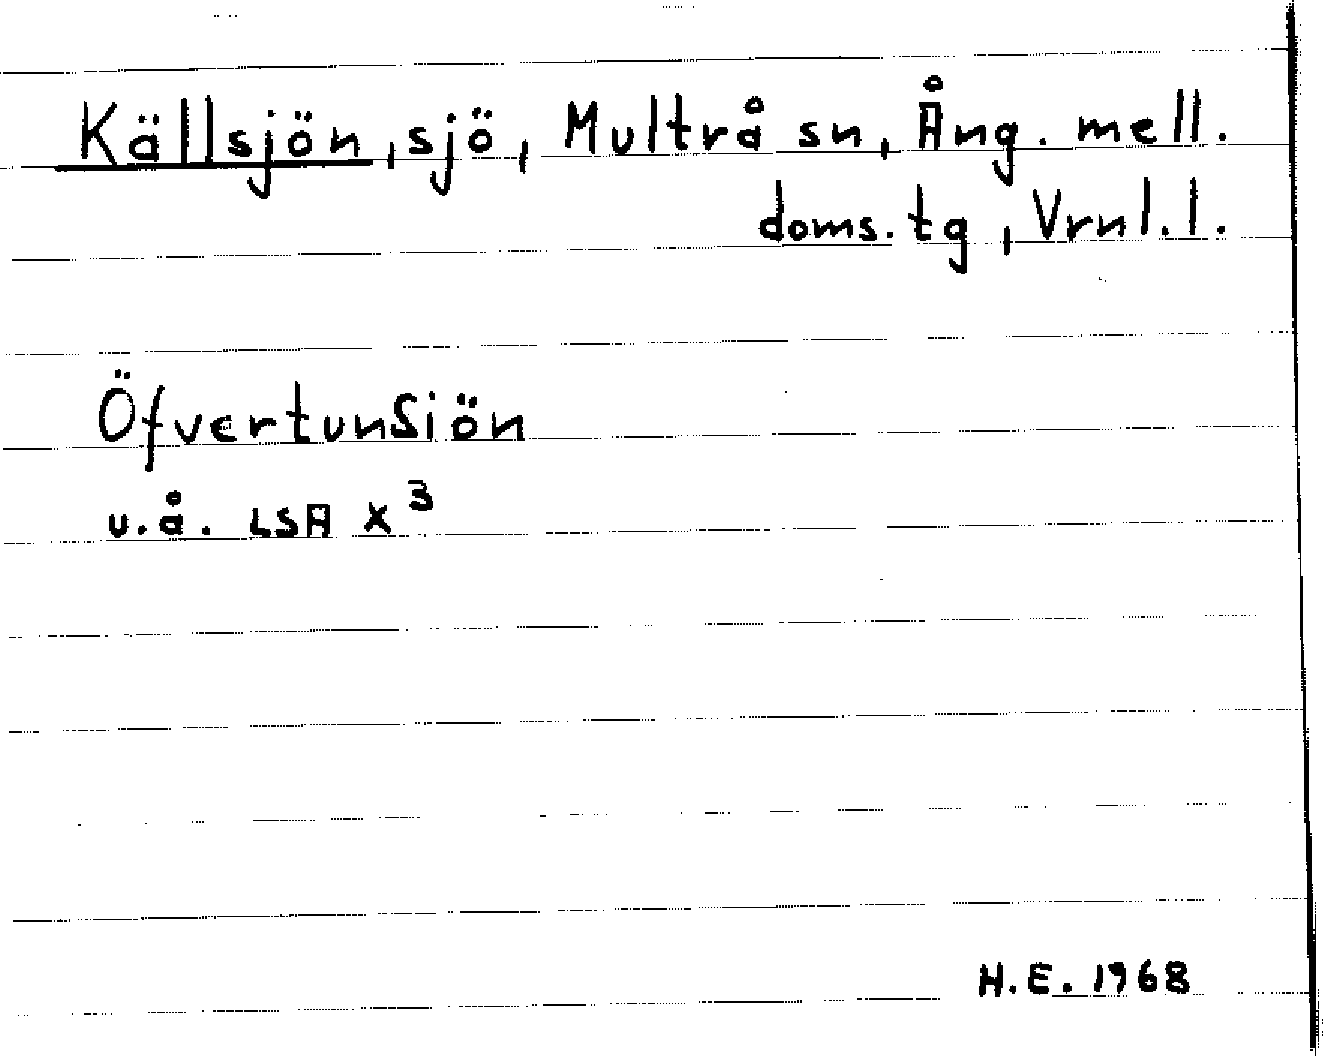 Källsjön, sjö, Multrå sn, Ång. mell.
doms. tg, Vrnl. l.
ÖfvertunSiön
u.å. LSA X³
H.E. 1968